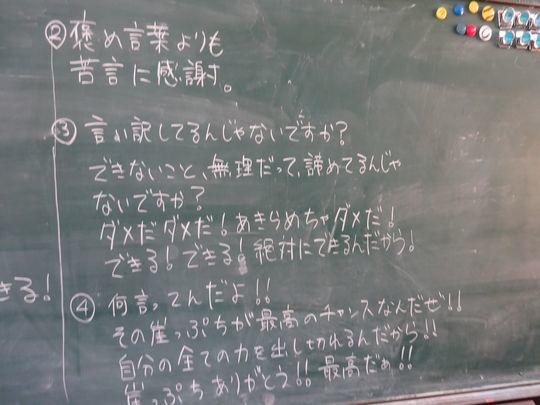 ② 褒め言葉よりも
苦言に感謝。
③ 言い訳してるんじゃないですか？
できないこと、無理だって、諦めてるんじゃ
ないですか？
ダメだダメだ！あきらめちゃダメだ！
できる！できる！絶対にできるんだから！
きる！
④ 何言ってんだよ！！
その崖っぷちが最高のチャンスなんだぜ！！
自分の全ての力を出し切れるんだから！！
崖っぷちありがとう！！最高だぁ！！